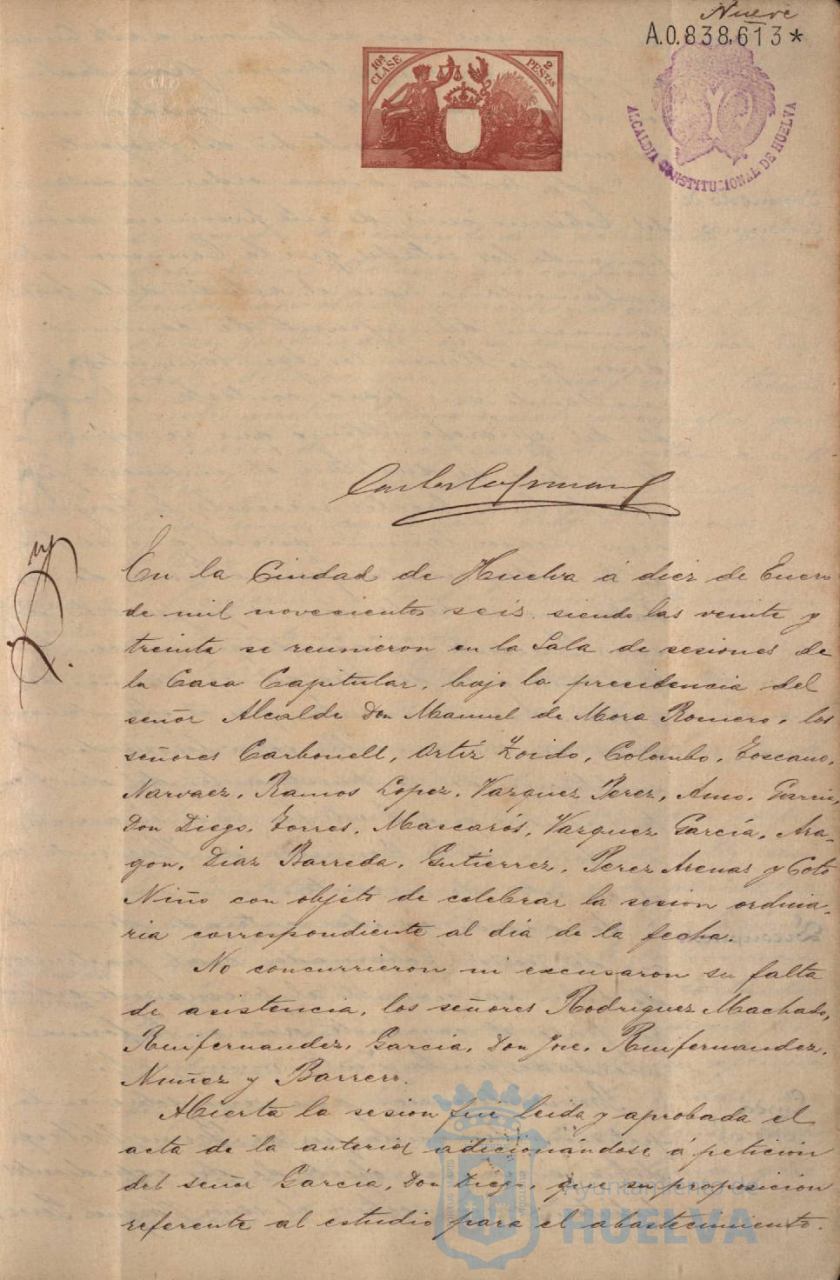 Nueve
A.0.838,613*
10ª CLASE
2 PESTAS
ALCALDIA CONSTITUCIONAL DE HUELVA
En la Ciudad de Huelva á diez de Enero
de mil novecientos seis, siendo las veinte y
treinta se reunieron en la Sala de sesiones de
la Casa Capitular, bajo la presidencia del
señor Alcalde Don Manuel de Mora Romero, los
señores Carbonell, Ortíz y Zoido, Colombo, Toscano,
Narvaez, Ramos Lopez, Vazquez Perez, Amo, García,
Don Diego, Torres, Mascarós, Vazquez García, Ara-
gon, Diaz Barreda, Gutiérrez, Perez Arenas y Coto
Niño con objeto de celebrar la sesion ordina-
ria correspondiente al día de la fecha.
No concurrieron ni excusaron su falta
de asistencia, los señores Rodriguez Machado,
Ruifernandez, García, Don José, Ruifernandez,
Nuñez y Barrero.
Abierta la sesion fué leida y aprobada el
acta de la anterior adicionándose á petición
del señor García, Don Diego, que su proposición
referente al estudio para el abastecimiento.
Ayuntamiento de
HUELVA